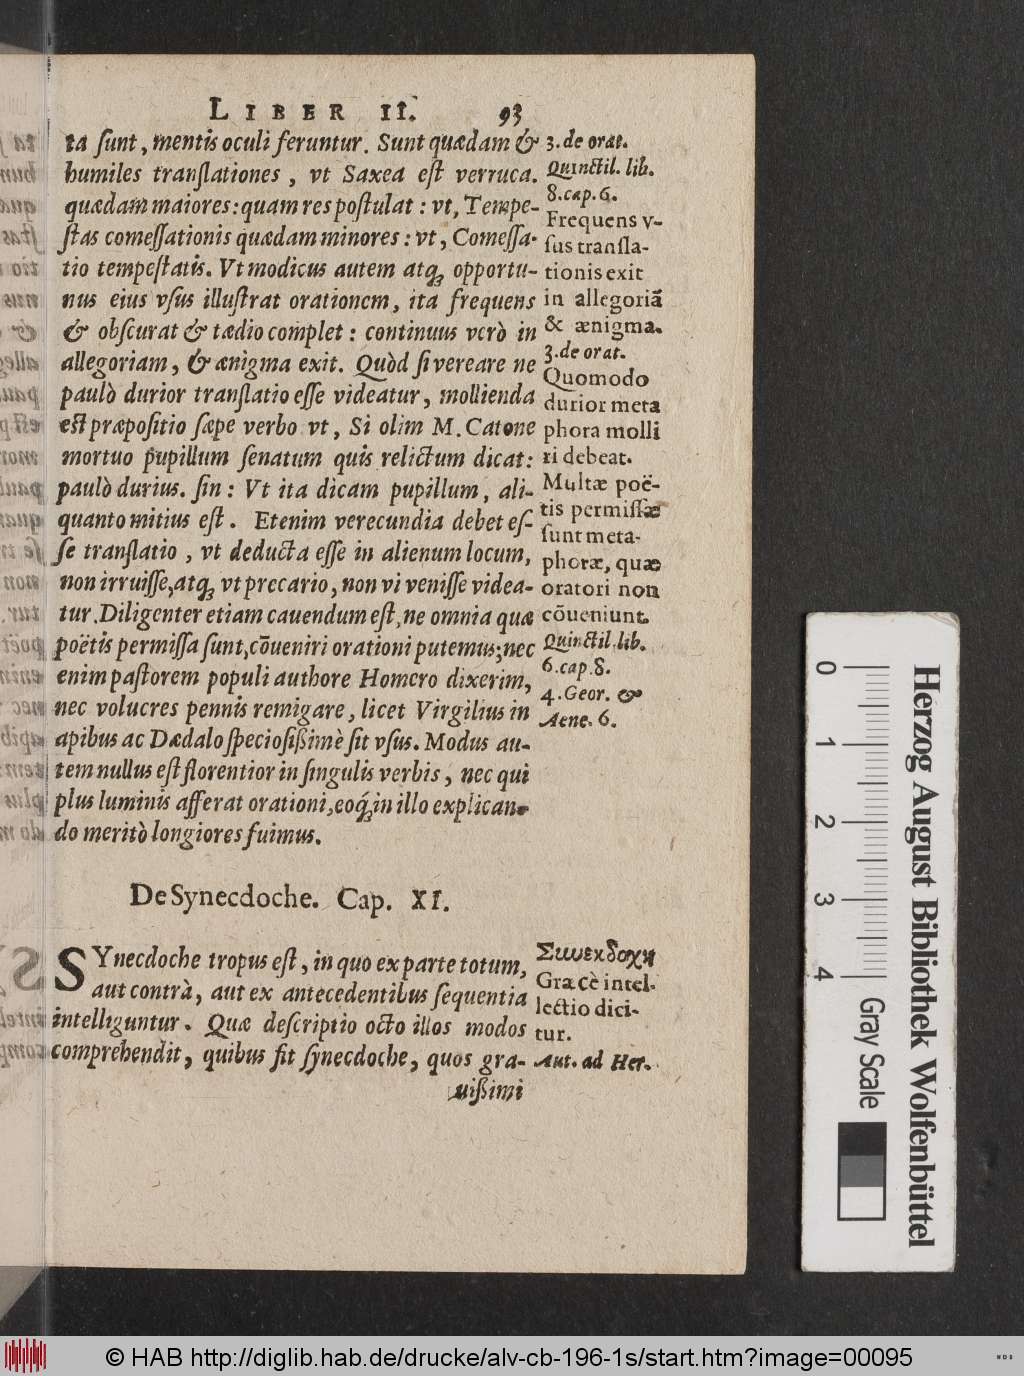 LIBER II. 93
ta ſunt, mentis oculi feruntur. Sunt quædam &
humiles tranſlationes, vt Saxea eſt verruca.
quædam maiores: quam res poſtulat: vt, Tempe-
ſtas comeſſationis quædam minores: vt, Comeſſa-
tio tempeſtatis. Vt modicus autem atq́ꝫ opportu-
nus eius vſus illuſtrat orationem, ita frequens
& obſcurat & tædio complet: continuus verò in
allegoriam, & ænigma exit. Quòd ſi vereare ne
paulò durior tranſlatio eſſe videatur, mollienda
eſt præpoſitio ſæpe verbo vt, Si olim M. Catone
mortuo pupillum ſenatum quis relictum dicat:
paulò durius. ſin: Vt ita dicam pupillum, ali-
quanto mitius eſt. Etenim verecundia debet eſ-
ſe tranſlatio, vt deducta eſſe in alienum locum,
non irruiſſe, atq́ꝫ vt precario, non vi veniſſe videa-
tur. Diligenter etiam cauendum eſt, ne omnia quæ
poëtis permiſſa ſunt, cōueniri orationi putemus; nec
enim paſtorem populi authore Homero dixerim,
nec volucres pennis remigare, licet Virgilius in
apibus ac Dædalo ſpecioſißimè ſit vſus. Modus au-
tem nullus eſt florentior in ſingulis verbis, nec qui
plus luminis afferat orationi, eoq́ꝫ in illo explican-
do meritò longiores fuimus.
3. de orat.
Quinctil. lib.
8. cap. 6.
Frequens v-
ſus tranſla-
tionis exit
in allegoriã
& ænigma.
3. de orat.
Quomodo
durior meta
phora molli
ri debeat.
Multæ poë-
tis permiſſæ
ſunt meta-
phoræ, quæ
oratori non
cõueniunt.
Quinctil. lib.
6. cap. 8.
4. Geor. &
Aene. 6.
De Synecdoche. Cap. XI.
SYnecdoche tropus eſt, in quo ex parte totum,
aut contrà, aut ex antecedentibus ſequentia
intelliguntur. Quæ deſcriptio octo illos modos
comprehendit, quibus fit ſynecdoche, quos gra-
uißimi
Συνεκδοχὴ
Græcè intel-
lectio dici-
tur.
Aut. ad Her.
0 1 2 3 4
Herzog August Bibliothek Wolfenbüttel
Gray Scale
© HAB http://diglib.hab.de/drucke/alv-cb-196-1s/start.htm?image=00095